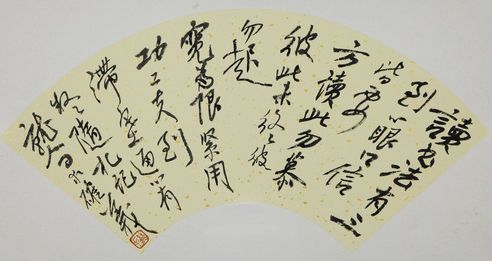 讀书法有三
到心眼口信
皆要
方讀此勿慕
彼此未终彼
勿起
寬為限緊用
功工夫到
滞塞通心有
疑随札记
就人问求確義